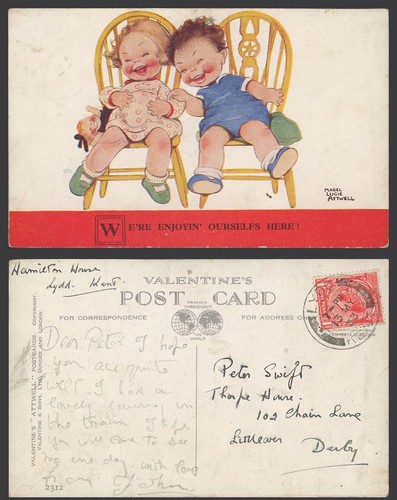 MABEL
LUCIE
ATTWELL
WE'RE ENJOYIN' OURSELFS HERE!
Hamilton House
Lydd. Kent.
VALENTINE'S
POST CARD
FAMOUS
THROUGHOUT
THE
WORLD
FOR CORRESPONDENCE
FOR ADDRESS
VALENTINE'S "ATTWELL" POSTCARDS. COPYRIGHT.
VALENTINE & SONS, LTD. DUNDEE AND LONDON.
2312
Dear Peter I hope
you are quite
well. I had a
lovely journey in
the train. I hope
you will come to see
me one day. with love
from
Peter Swift
Thorpe House.
102 Chain Lane
Littleover
Derby
LYDD